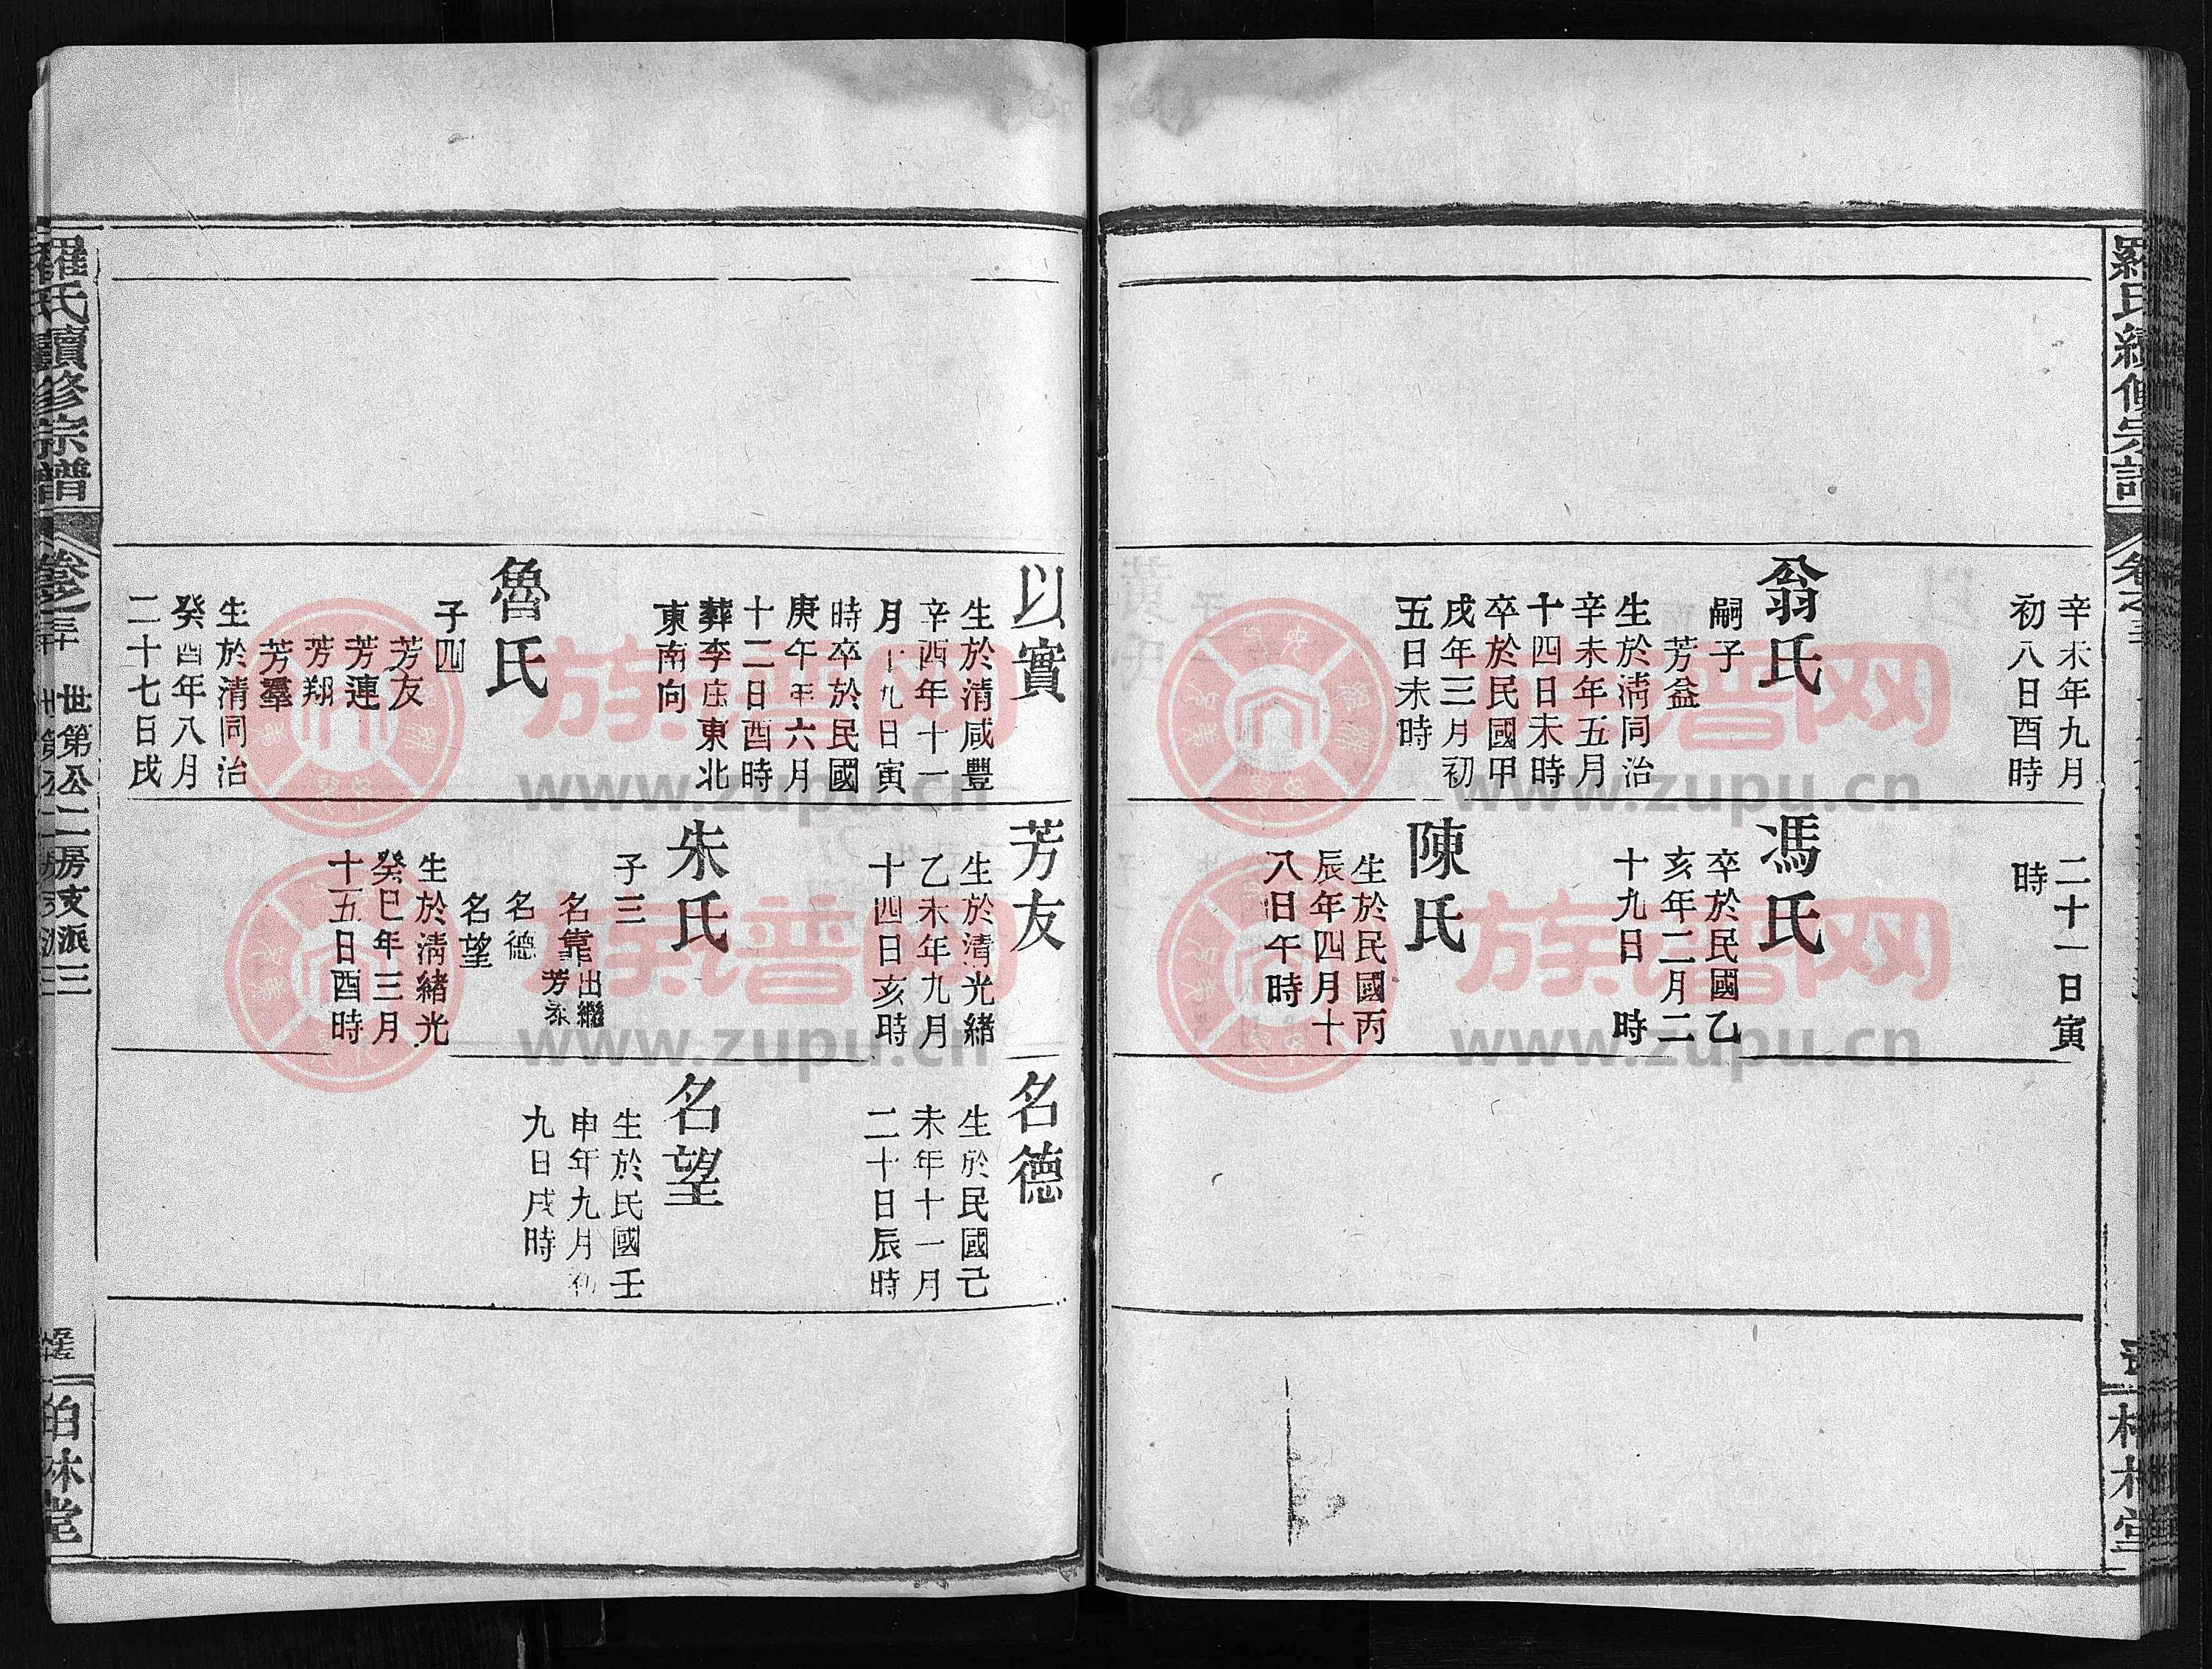 羅氏續修宗譜
辛未年九月
初八日酉時
翁氏
嗣子
芳益
生於清同治
辛未年五月
十四日未時
卒於民國甲
戌年三月初
五日未時
二十一日寅
時
馮氏
卒於民國乙
亥年二月二
十九日 時
陳氏
生於民國丙
辰年四月十
八日午時
以實
生於清咸豐
辛酉年十一
月十九日寅
時卒於民國
庚午年六月
十二日酉時
葬李庄東北
東南向
魯氏
子四
芳友
芳連
芳翔
芳羣
生於清同治
癸酉年八月
二十七日戌
芳友
生於清光緒
乙未年九月
十四日亥時
朱氏
子三
名靠
出繼
芳
名德
名望
生於清緒光
癸巳年三月
十五日酉時
名德
生於民國己
未年十一月
二十日辰時
名望
生於民國壬
申年九月初
九日戌時
羅氏續修宗譜
卷之三
世第公二房支派三
柏林堂
族譜网
www.zupu.cn
族譜网
www.zupu.cn
族譜网
www.zupu.cn
族譜网
www.zupu.cn